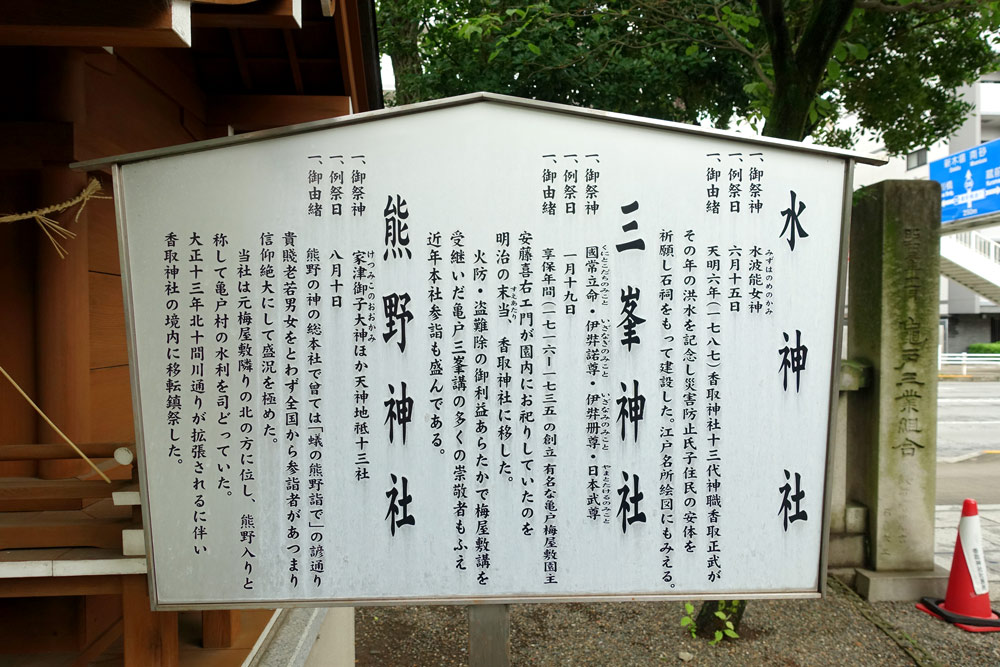 水神社
一、御祭神　水波能女神
みずはのめのかみ
一、例祭日　六月十五日
一、御由緒　天明六年(一七八七)香取神社十三代神職香取正武が
その年の洪水を記念し災害防止氏子住民の安体を
祈願し石祠をもって建設した。江戸名所絵図にもみえる。
三峯神社
一、御祭神　國常立命・伊弉諾尊・伊弉册尊・日本武尊
くにとこだちのみこと　いざなぎのみこと　いざなみのみこと　やまとたけるのみこと
一、例祭日　一月十九日
一、御由緒　享保年間(一七一六ー一七三五の創立有名な亀戸梅屋敷園主
安藤喜右エ門が園内にお祀りしていたのを
明治の末当、香取神社に移した。
すえあたり
火防・盗難除の御利益あらたかで梅屋敷講を
受継いだ亀戸三峯講の多くの崇敬者もふえ
近年本社参詣も盛んである。
熊野神社
一、御祭神　家津御子大神ほか天神地祗十三社
けつみこのおおかみ
一、例祭日　八月十日
一、御由緒　熊野の神の総本社で曾ては「蟻の熊野詣で」の諺通り
貴賤老若男女をとわず全国から参詣者があつまり
信仰絶大にして盛況を極めた。
当社は元梅屋敷隣りの北の方に位し、熊野入りと
称して亀戸村の水利を司どっていた。
大正十三年北十間川通りが拡張されるに伴い
香取神社の境内に移転鎮祭した。
亀戸三業組合
南砂